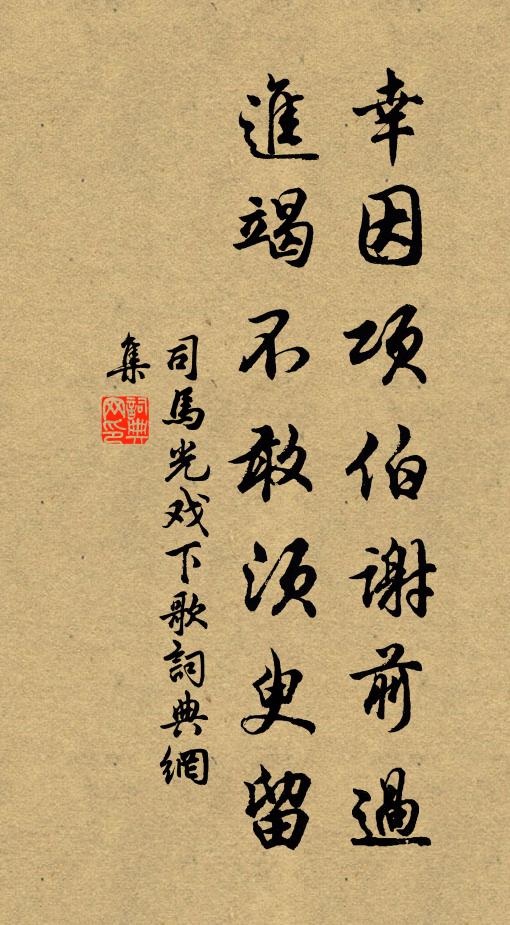 幸因项伯谢前過
進竭不敢須臾留
司馬光戏下歌詞典網
集
詞典网印